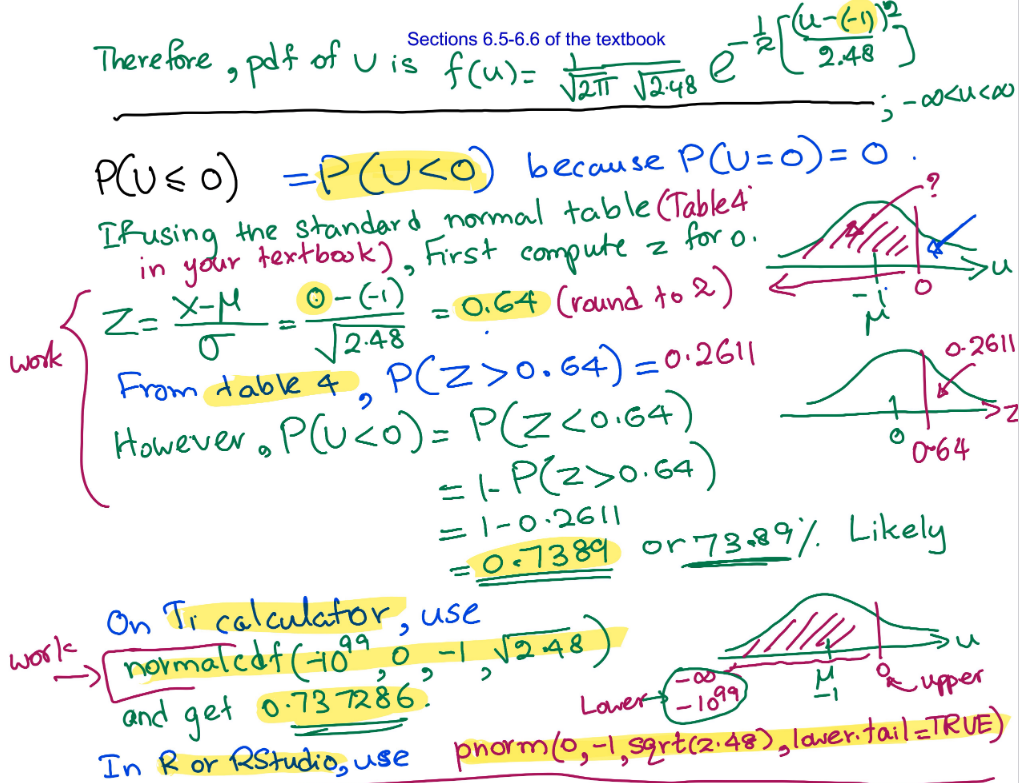 Sections 6.5-6.6 of the textbook
Therefore, pdf of U is f(u) = 1/(√2π √2.48) e^{-1/2[(u-(-1))²/2.48]} ; -∞<u<∞
P(U ≤ 0) = P(U<0) because P(U=0) = 0.
If using the standard normal table (Table 4
in your textbook), First compute z for 0.
?
-1
μ
0
u
work
Z = (x-μ)/σ = (0-(-1))/√2.48 = 0.64 (round to 2)
From table 4, P(Z>0.64) = 0.2611
0.2611
0
0.64
Z
However, P(U<0) = P(Z<0.64)
= 1-P(Z>0.64)
= 1-0.2611
= 0.7389 or 73.89% Likely
On Ti calculator, use
work → normalcdf(-10^99, 0, -1, √2.48)
and get 0.737286.
Lower → -∞
-10^99
μ
-1
0 upper
u
In R or RStudio, use pnorm(0,-1,sqrt(2.48),lower.tail=TRUE)